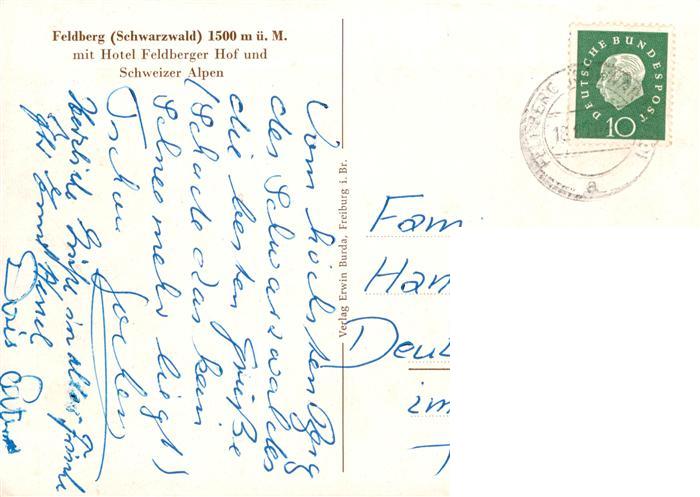 Feldberg (Schwarzwald) 1500 m ü. M.
mit Hotel Feldberger Hof und
Schweizer Alpen
Vom höchsten Berg
des Schwarzwaldes
die besten Grüße
(Schade das kein
Schnee mehr liegt)
Tschau
Herzliche Grüße in alter Frische
Doris
Verlag Erwin Burda, Freiburg i. Br.
DEUTSCHE BUNDESPOST
10
FELDBERG
a
Fam
Han
Deut
im